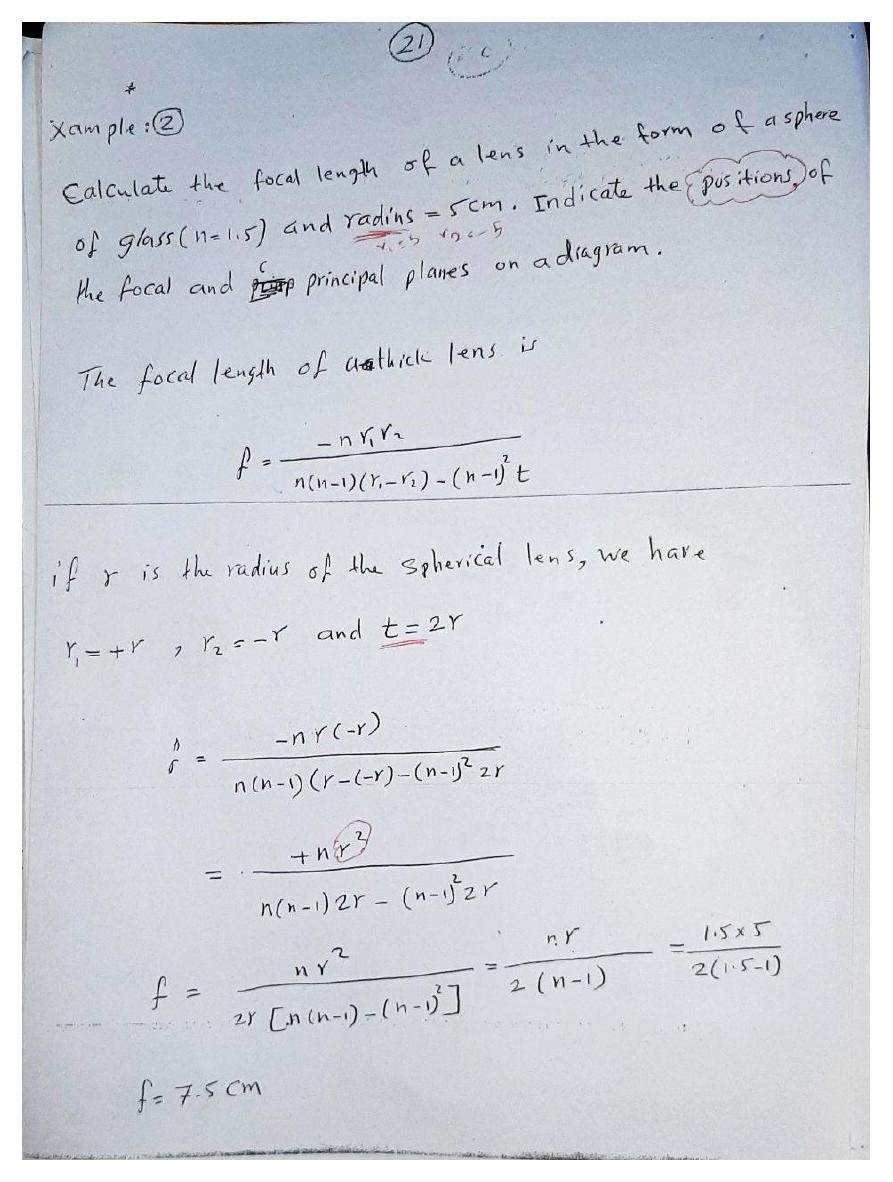 21
*
Xample : ②
Calculate the focal length of a lens in the form of a sphere
of glass (n=1.5) and radius = 5cm. Indicate the positions of
r₁=5 r₂=-5
the focal and principal planes on a diagram.
The focal length of a thick lens is
f = -n r₁ r₂ / n(n-1)(r₁-r₂) - (n-1)² t
if r is the radius of the spherical lens, we have
r₁ = +r , r₂ = -r and t = 2r
f = -n r (-r) / n(n-1)(r-(-r) - (n-1)² 2r
= + n r² / n(n-1) 2r - (n-1)² 2r
f = n r² / 2r [n(n-1) - (n-1)²] = n r / 2(n-1) = 1.5 x 5 / 2(1.5-1)
f = 7.5 cm